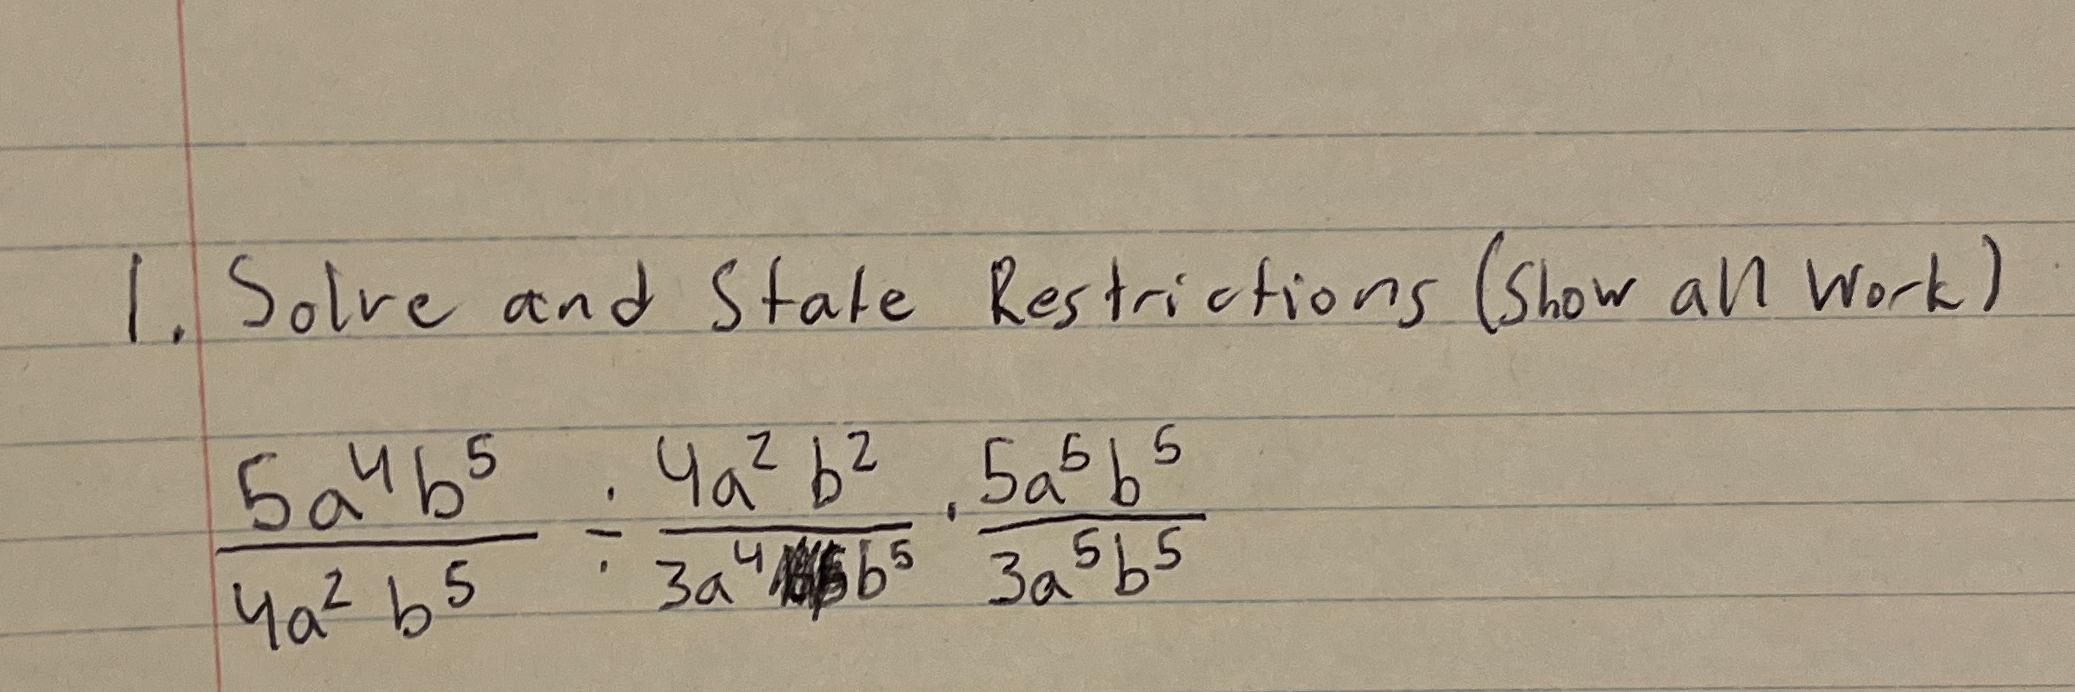 1. Solve and State Restrictions (Show all Work)
5a⁴b⁵ / 4a²b⁵ ÷ 4a²b² / 3a⁴b⁵ · 5a⁵b⁵ / 3a⁵b⁵